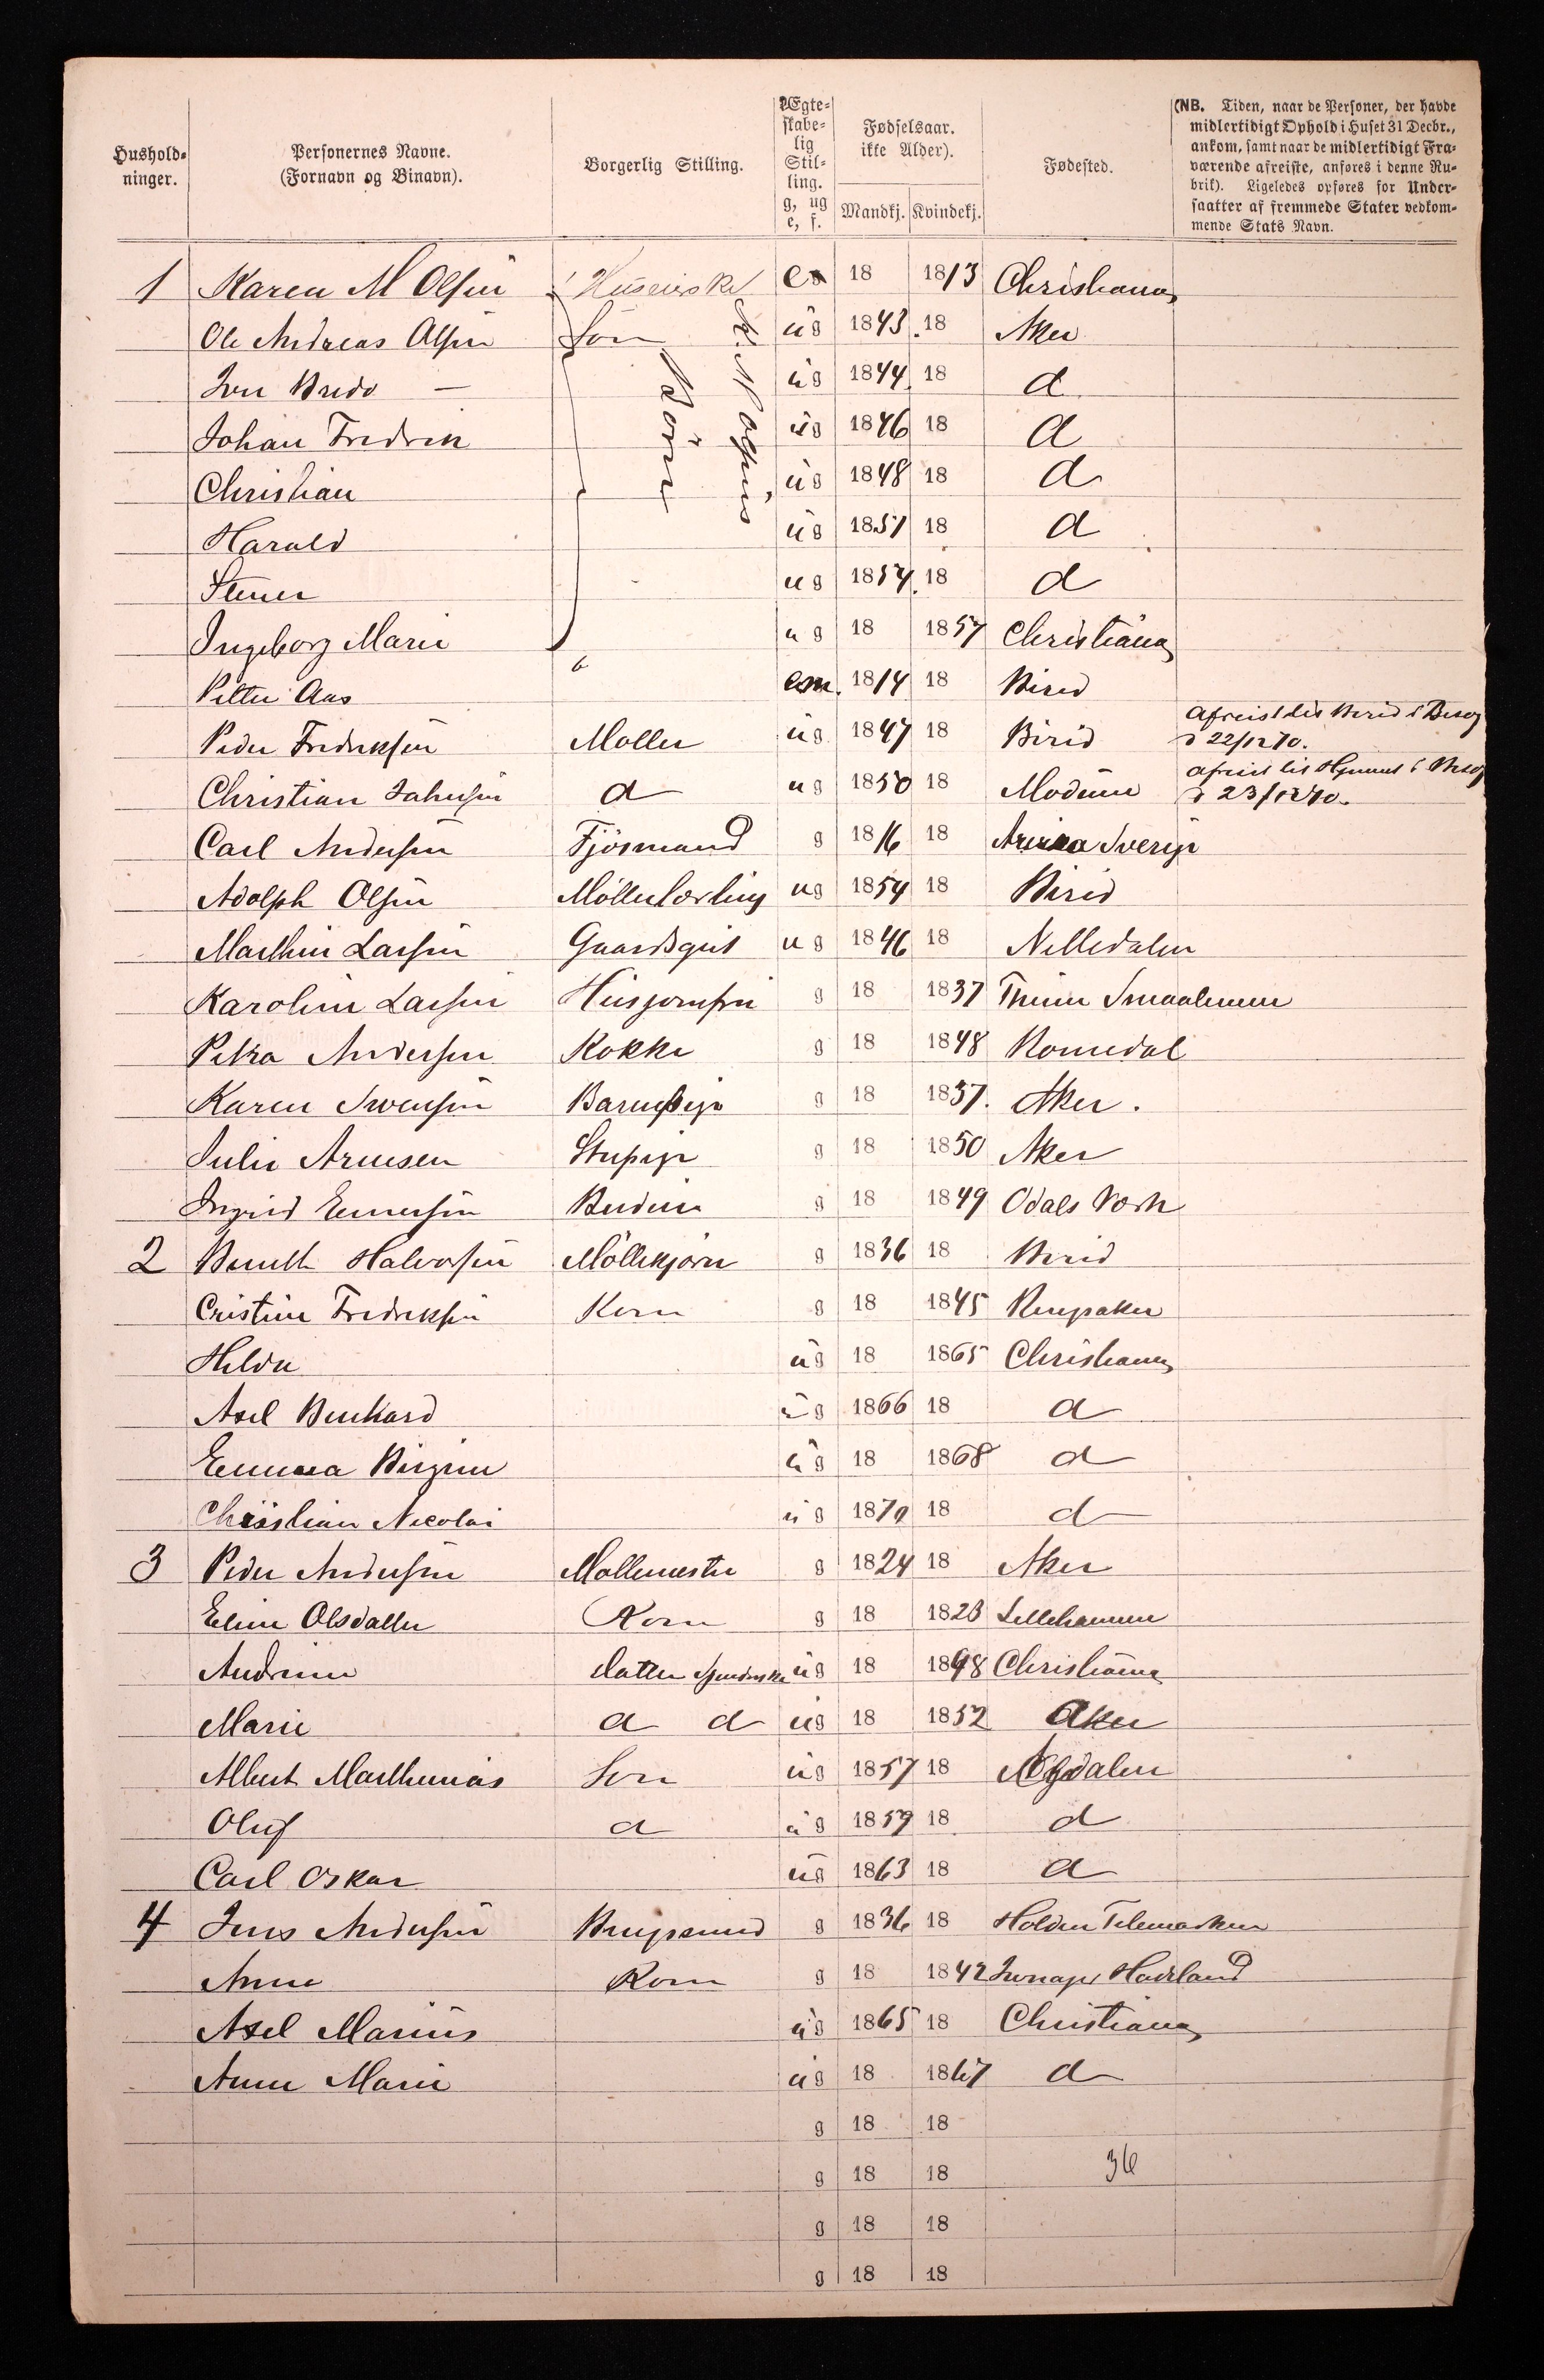 Hushold-
ninger.
Personernes Navne.
(Fornavn og Binavn).
Borgerlig Stilling.
Ægte-
skabe-
lig
Stil-
ling.
g, ug
e, f.
Fødselsaar.
ikke Alder).
Mandkj. Kvindekj.
Fødested.
(NB. Tiden, naar de Personer, der havde
midlertidigt Ophold i Huset 31 Decbr.,
ankom, samt naar de midlertidigt Fra-
værende afreiste, anføres i denne Ru-
brik). Ligeledes opføres for Under-
saatter af fremmede Stater vedkom-
mende Stats Navn.
1 Karen M Olsen 18 1813 Christiania
Ole Andreas Olsen Sön ug 1843 18 Aker
Bredo — ug 1844 18 d
Johan Fredrik ug 1846 18 d
Christian ug 1848 18 d
Harald ug 1851 18 d
ug 1854 18 d
Ingeborg Marie ug 18 1857 Christiania
Petter Aas em. 1814 18 Birid
Peder Fredriksen Møller ug 1847 18 Birid Afreist til Birid i Besøg
d 22/12 70.
Christian Johnsen d ug 1850 18 Modum afreist til Hjemmet i Besøg
d 23/12 70.
Carl Andersen Fjösmand g 1816 18 Sverige
Adolph Olsen Möllerlærling ug 1854 18 Birid
Marthin Larsen Gaardsgut ug 1846 18 Nittedalen
Karoline Larsen Husjomfru g 18 1837 Smaalenene
Petra Andersen Kokke g 18 1848 Romedal
Karen Svensen Barnepige g 18 1837. Aker.
Julie Arnesen Stupige g 18 1850 Aker
Ingrid Budeie g 18 1849 Odals Værk
2 Halvorsen Möllekjörer g 1836 18 Birid
Cristine Fredriksen Kone g 18 1845 Ringsaker
Hilda ug 18 1865 Christiania
Axel Bernhard ug 1866 18 d
Emma Birgine ug 18 1868 d
Christian Nicolai ug 1870 18 d
3 Peder Andersen Møllemester g 1824 18 Aker
Eline Olsdatter Kone g 18 1823 Lillehammer
Andrine datter ug 18 1848 Christiania
Marie d d ug 18 1852 Aker
Albert Marthinius Sön ug 1857 18
Oluf d ug 1859 18 d
Carl Oskar ug 1863 18 d
4 Jens Andersen g 1836 18 Holden Telemarken
Anne Kone g 18 1842 Hadeland
Axel Marius ug 1865 18 Christiania
Anne Marie ug 18 1867 d
g 18 18
g 18 18 36
g 18 18
g 18 18